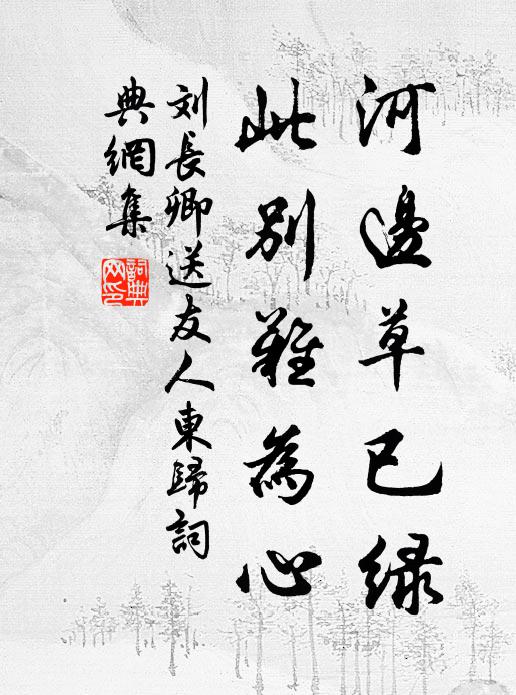 河邊草已緑
此别難為心
刘長卿送友人東歸詞
典網集
詞典
网印